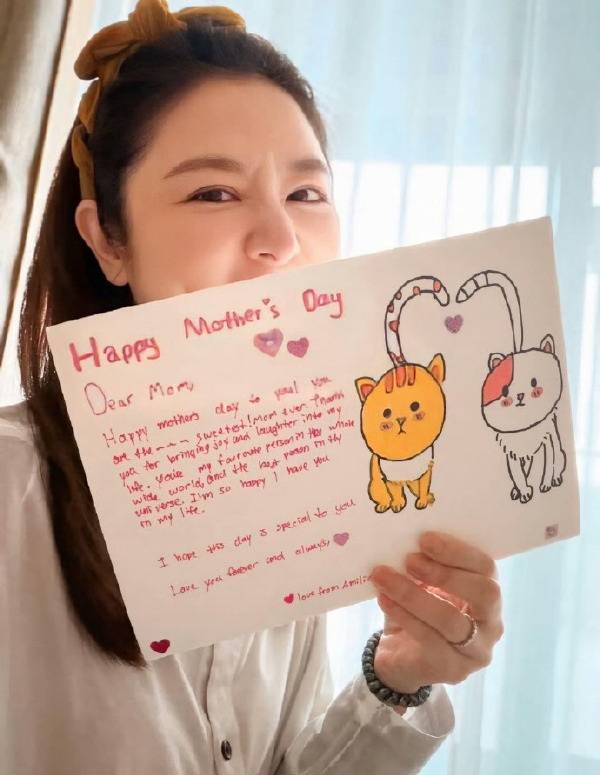 Happy Mother's Day
Dear Mom,
Happy mothers day to you! You
are the ~~~ sweetest! Mom ever. Thanks
you for bringing joy and laughter into my
life. You're my favourite person in the whole
wide world, and the best person in the
universe. I'm so happy I have you
in my life.
I hope this day is special to you
Love you forever and always,
love from Amili